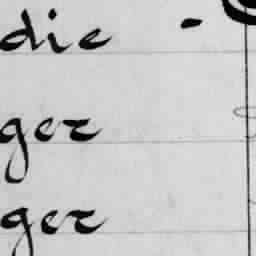 die -
ger
ger